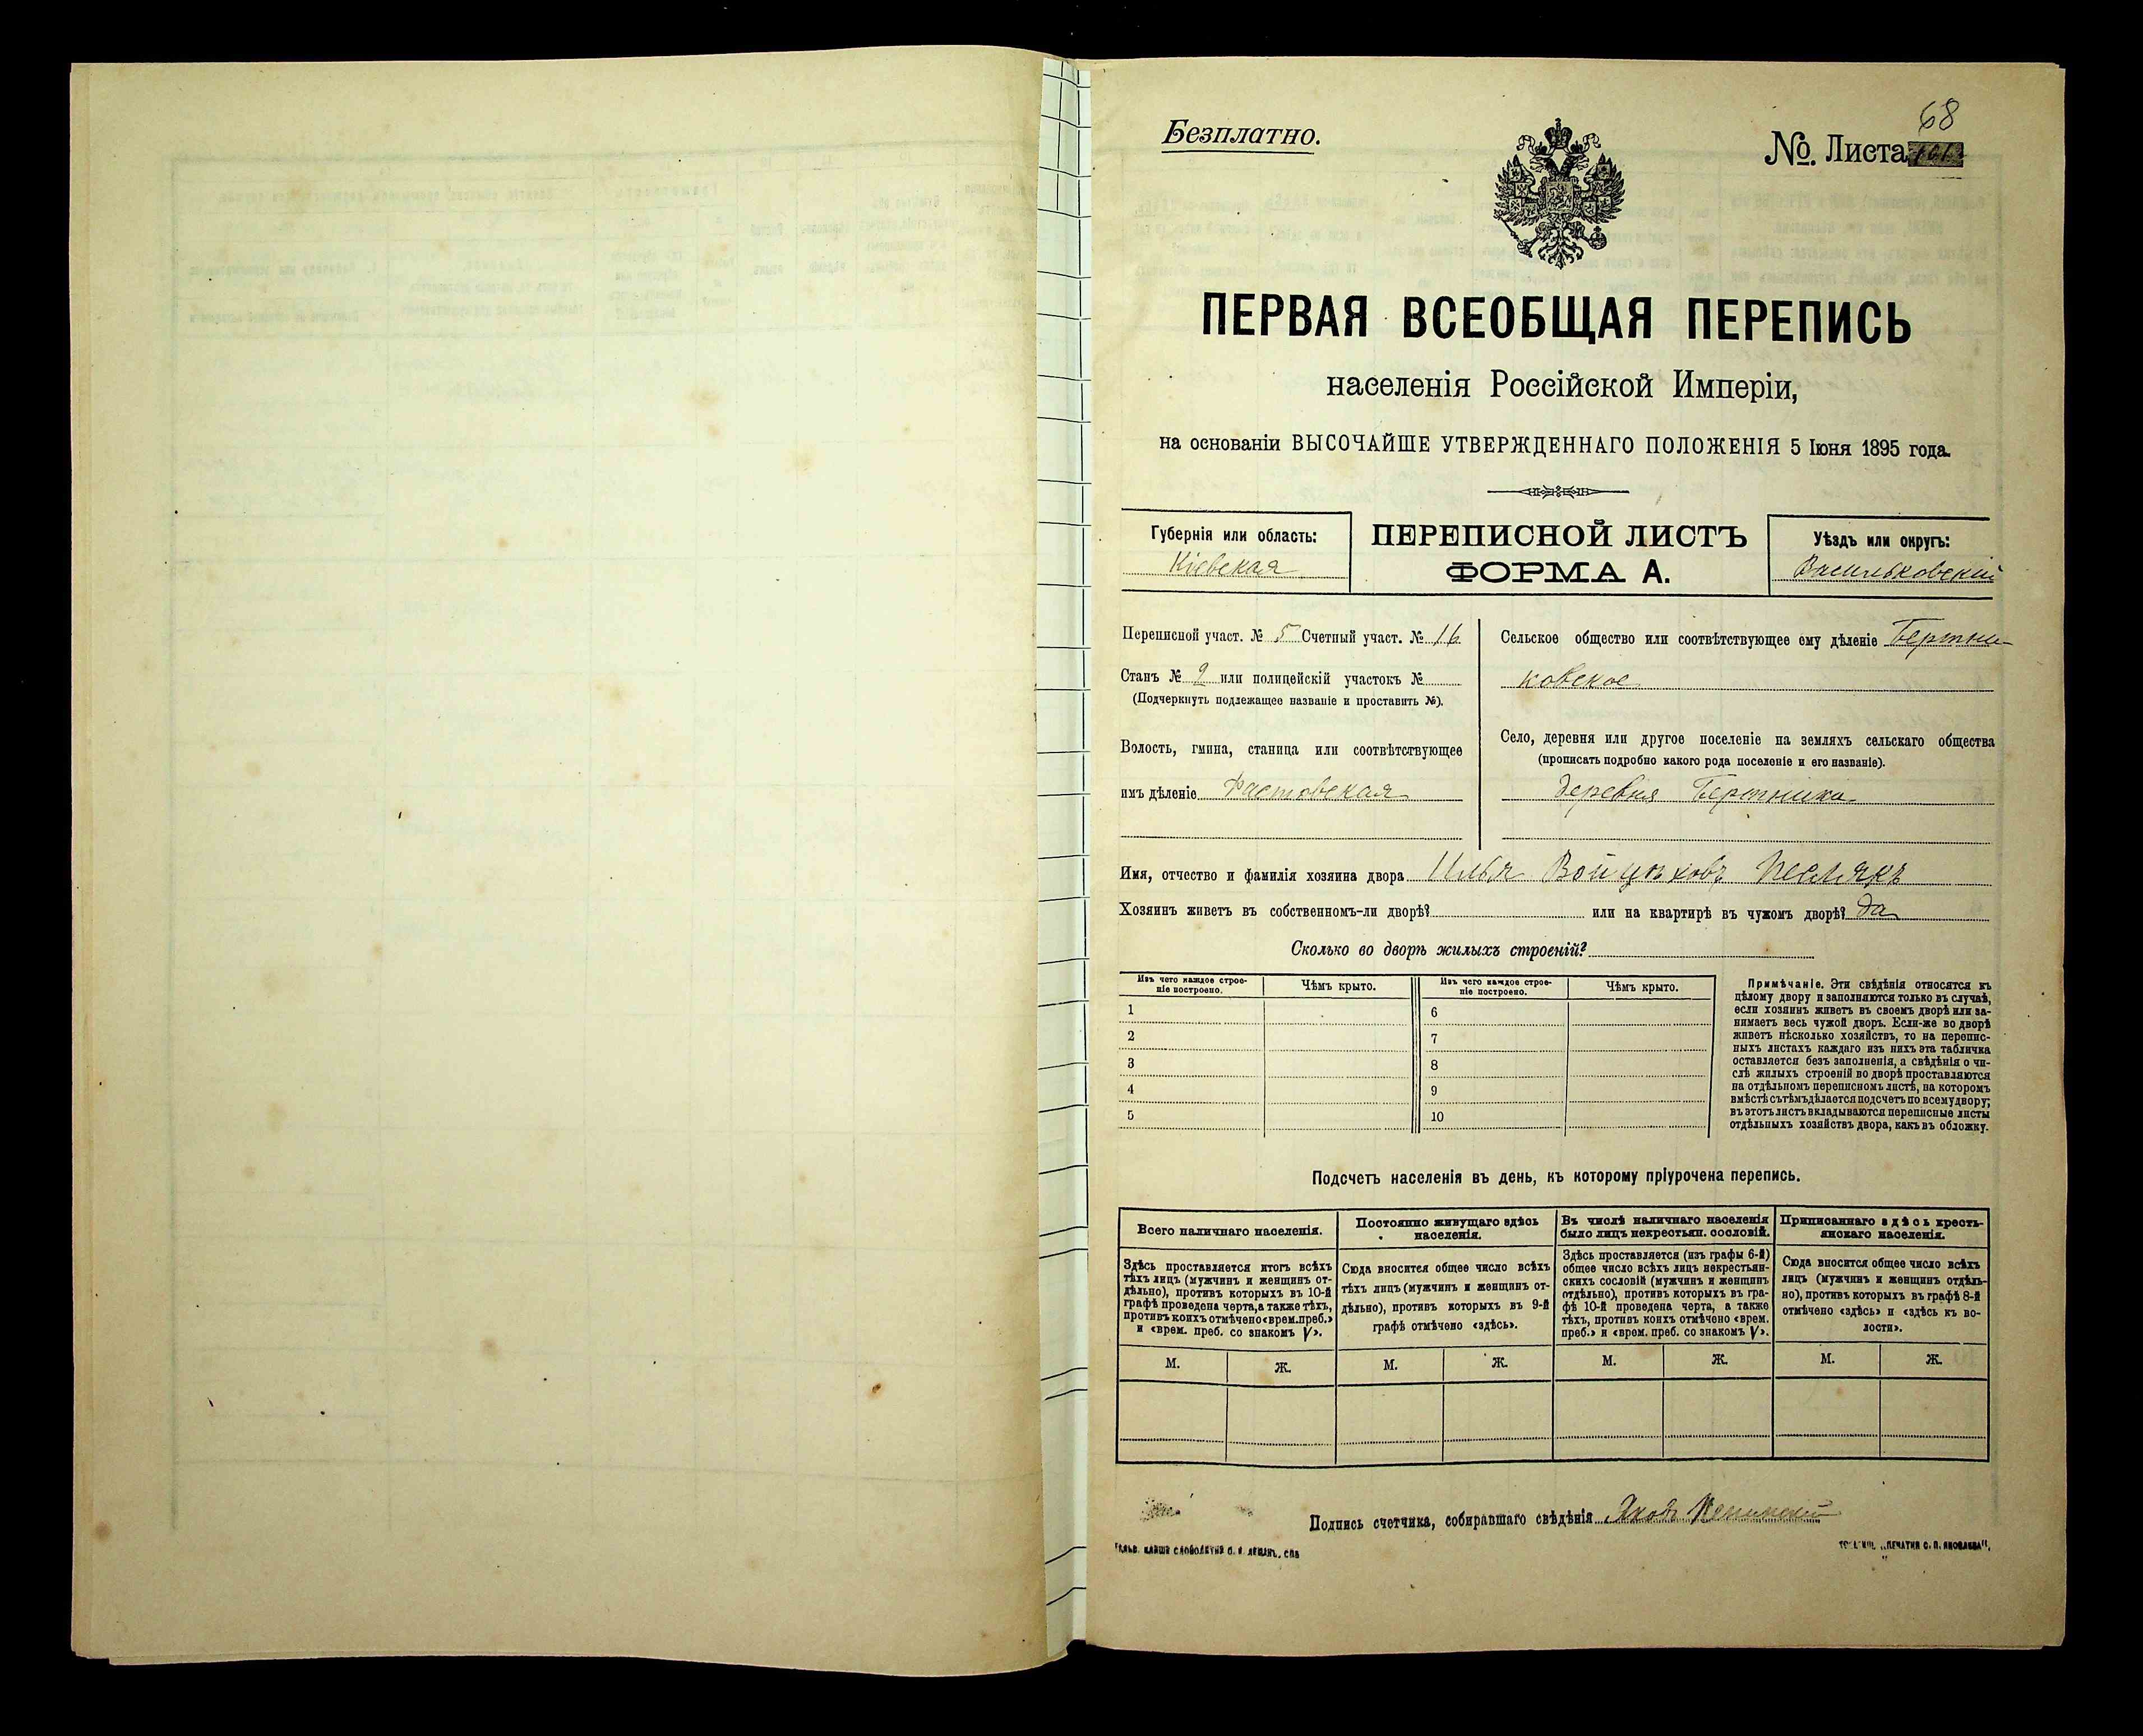 68
Безплатно.
№ Листа
ПЕРВАЯ ВСЕОБЩАЯ ПЕРЕПИСЬ
населенія Россійской Имперіи,
на основаніи ВЫСОЧАЙШЕ УТВЕРЖДЕННАГО ПОЛОЖЕНІЯ 5 Іюня 1895 года.
Губернія или область:
Кіевская
ПЕРЕПИСНОЙ ЛИСТЪ
ФОРМА А.
Уѣздъ или округъ:
Васильковскій
Переписной участ. № 5 Счетный участ. № 16
Станъ № 2 или полицейскій участокъ №
(Подчеркнуть подлежащее названіе и проставить №).
Волость, гмина, станица или соотвѣтствующее
имъ дѣленіе Фастовская
Сельское общество или соотвѣтствующее ему дѣленіе Бертни-
ковское
Село, деревня или другое поселеніе на земляхъ сельскаго общества
(прописать подробно какого рода поселеніе и его названіе).
деревня Бертники
Имя, отчество и фамилія хозяина двора Илья Войцѣховъ
Хозяинъ живетъ въ собственномъ-ли дворѣ? или на квартирѣ въ чужомъ дворѣ? да
Сколько во дворѣ жилыхъ строеній?
Изъ чего каждое строе-
ніе построено.
Чѣмъ крыто.
Изъ чего каждое строе-
ніе построено.
Чѣмъ крыто.
1
6
2
7
3
8
4
9
5
10
Примѣчаніе. Эти свѣдѣнія относятся къ
цѣлому двору и заполняются только въ случаѣ,
если хозяинъ живетъ въ своемъ дворѣ или за-
нимаетъ весь чужой дворъ. Если-же во дворѣ
живетъ нѣсколько хозяйствъ, то на перепис-
ныхъ листахъ каждаго изъ нихъ эта табличка
оставляется безъ заполненія, а свѣдѣнія о чи-
слѣ жилыхъ строеній во дворѣ проставляются
на отдѣльномъ переписномъ листѣ, на которомъ
вмѣстѣ съ тѣмъ дѣлается подсчетъ по всему двору;
въ этотъ листъ вкладываются переписные листы
отдѣльныхъ хозяйствъ двора, какъ въ обложку.
Подсчетъ населенія въ день, къ которому пріурочена перепись.
Всего наличнаго населенія.
Здѣсь проставляется итогъ всѣхъ
тѣхъ лицъ (мужчинъ и женщинъ от-
дѣльно), противъ которыхъ въ 10-й
графѣ проведена черта, а также тѣхъ,
противъ коихъ отмѣчено «врем. преб.»
и «врем. преб. со знакомъ V».
М. Ж.
Постоянно живущаго здѣсь
населенія.
Сюда вносится общее число всѣхъ
тѣхъ лицъ (мужчинъ и женщинъ от-
дѣльно), противъ которыхъ въ 9-й
графѣ отмѣчено «здѣсь».
М. Ж.
Въ числѣ наличнаго населенія
было лицъ некрестьян. сословій.
Здѣсь проставляется (изъ графы 6-й)
общее число всѣхъ лицъ некрестьян-
скихъ сословій (мужчинъ и женщинъ
отдѣльно), противъ которыхъ въ гра-
фѣ 10-й проведена черта, а также
тѣхъ, противъ коихъ отмѣчено «врем.
преб.» и «врем. преб. со знакомъ V».
М. Ж.
Приписаннаго здѣсь кресть-
янскаго населенія.
Сюда вносится общее число всѣхъ
лицъ (мужчинъ и женщинъ отдѣль-
но), противъ которыхъ въ графѣ 8-й
отмѣчено «здѣсь» и «здѣсь къ во-
лости».
М. Ж.
Подпись счетчика, собиравшаго свѣдѣнія Яковъ